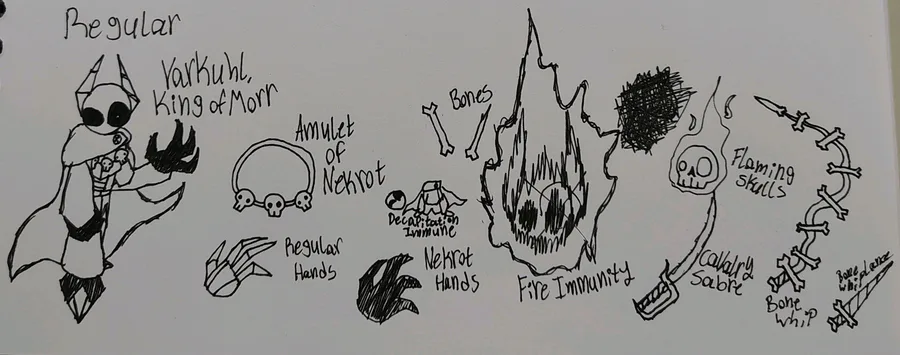 Regular
Varkuhl,
King of Morr
Amulet
of
Nekrot
Regular
Hands
Bones
Decapitation
Immune
Nekrot
Hands
Fire Immunity
Flaming
Skulls
Cavalry
Sabre
Bone
Whip
Bone
Whiplance